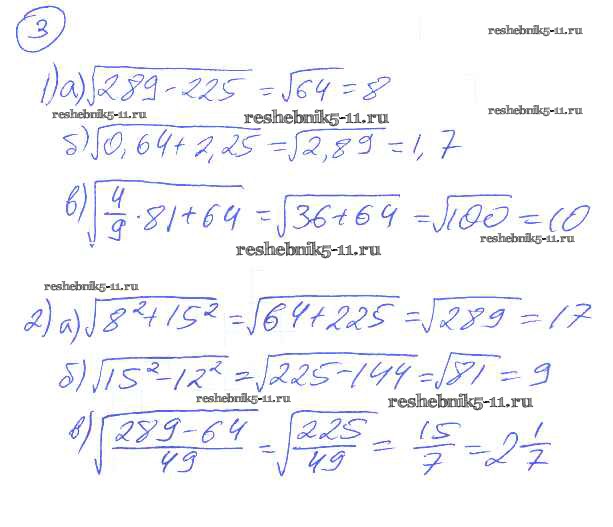 3
reshebnik5-11.ru
1) а) √(289 - 225) = √64 = 8
reshebnik5-11.ru
reshebnik5-11.ru
reshebnik5-11.ru
б) √(0,64 + 2,25) = √2,89 = 1,7
в) √(4/9 · 81 + 64) = √(36 + 64) = √100 = 10
reshebnik5-11.ru
reshebnik5-11.ru
reshebnik5-11.ru
2) а) √(8² + 15²) = √(64 + 225) = √289 = 17
б) √(15² - 12²) = √(225 - 144) = √81 = 9
reshebnik5-11.ru
reshebnik5-11.ru
в) √((289 - 64)/49) = √(225/49) = 15/7 = 2 1/7